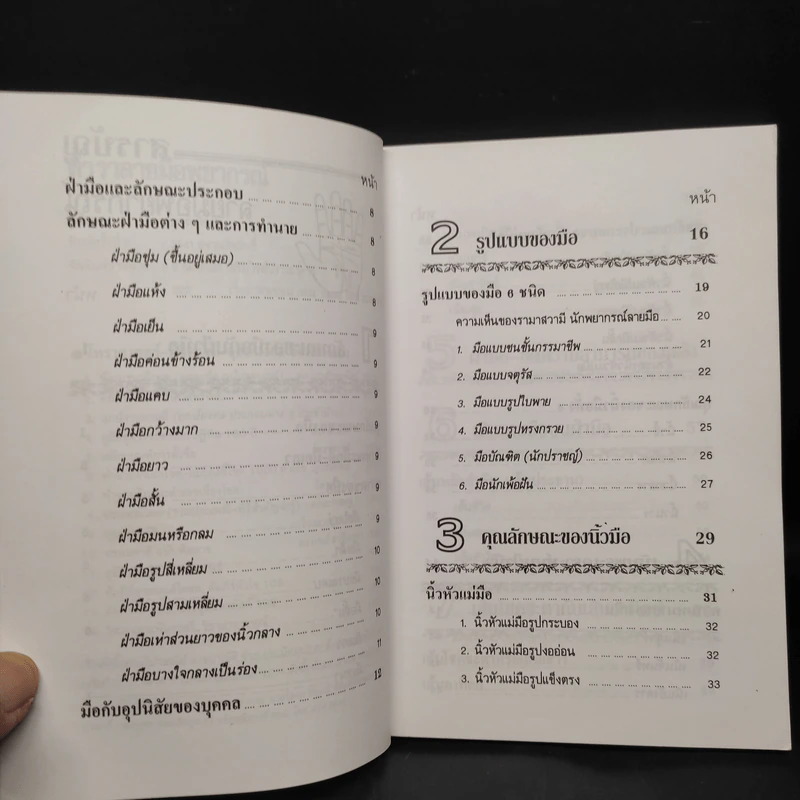 หน้า
ฝ่ามือและลักษณะประกอบ .................... 8
ลักษณะฝ่ามือต่าง ๆ และการทำนาย .................... 8
ฝ่ามือชุ่ม (ชื้นอยู่เสมอ) .................... 8
ฝ่ามือแห้ง .................... 8
ฝ่ามือเย็น .................... 9
ฝ่ามือค่อนข้างร้อน .................... 9
ฝ่ามือแคบ .................... 9
ฝ่ามือกว้างมาก .................... 9
ฝ่ามือยาว .................... 9
ฝ่ามือสั้น .................... 9
ฝ่ามือมนหรือกลม .................... 9
ฝ่ามือรูปสี่เหลี่ยม .................... 10
ฝ่ามือรูปสามเหลี่ยม .................... 10
ฝ่ามือเท่าส่วนยาวของนิ้วกลาง .................... 10
ฝ่ามือบางใจกลางเป็นร่อง .................... 11
มือกับอุปนิสัยของบุคคล .................... 12
หน้า
2 รูปแบบของมือ 16
รูปแบบของมือ 6 ชนิด .................... 19
ความเห็นของรามาสวามี นักพยากรณ์ลายมือ .................... 20
1. มือแบบชนชั้นกรรมาชีพ .................... 21
2. มือแบบจตุรัส .................... 22
3. มือแบบรูปใบพาย .................... 24
4. มือแบบรูปทรงกรวย .................... 25
5. มือบัณฑิต (นักปราชญ์) .................... 26
6. มือนักเพ้อฝัน .................... 27
3 คุณลักษณะของนิ้วมือ 29
นิ้วหัวแม่มือ .................... 31
1. นิ้วหัวแม่มือรูปกระบอง .................... 32
2. นิ้วหัวแม่มือรูปงออ่อน .................... 32
3. นิ้วหัวแม่มือรูปแข็งตรง .................... 33